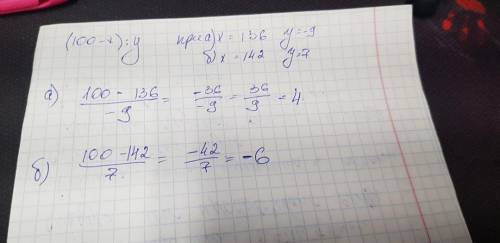 (100-x):y при а) x = 136 y=-9
б) x = 142 y=7
а) (100 - 136)/-9 = -36/-9 = 36/9 = 4
б) (100 - 142)/7 = -42/7 = -6